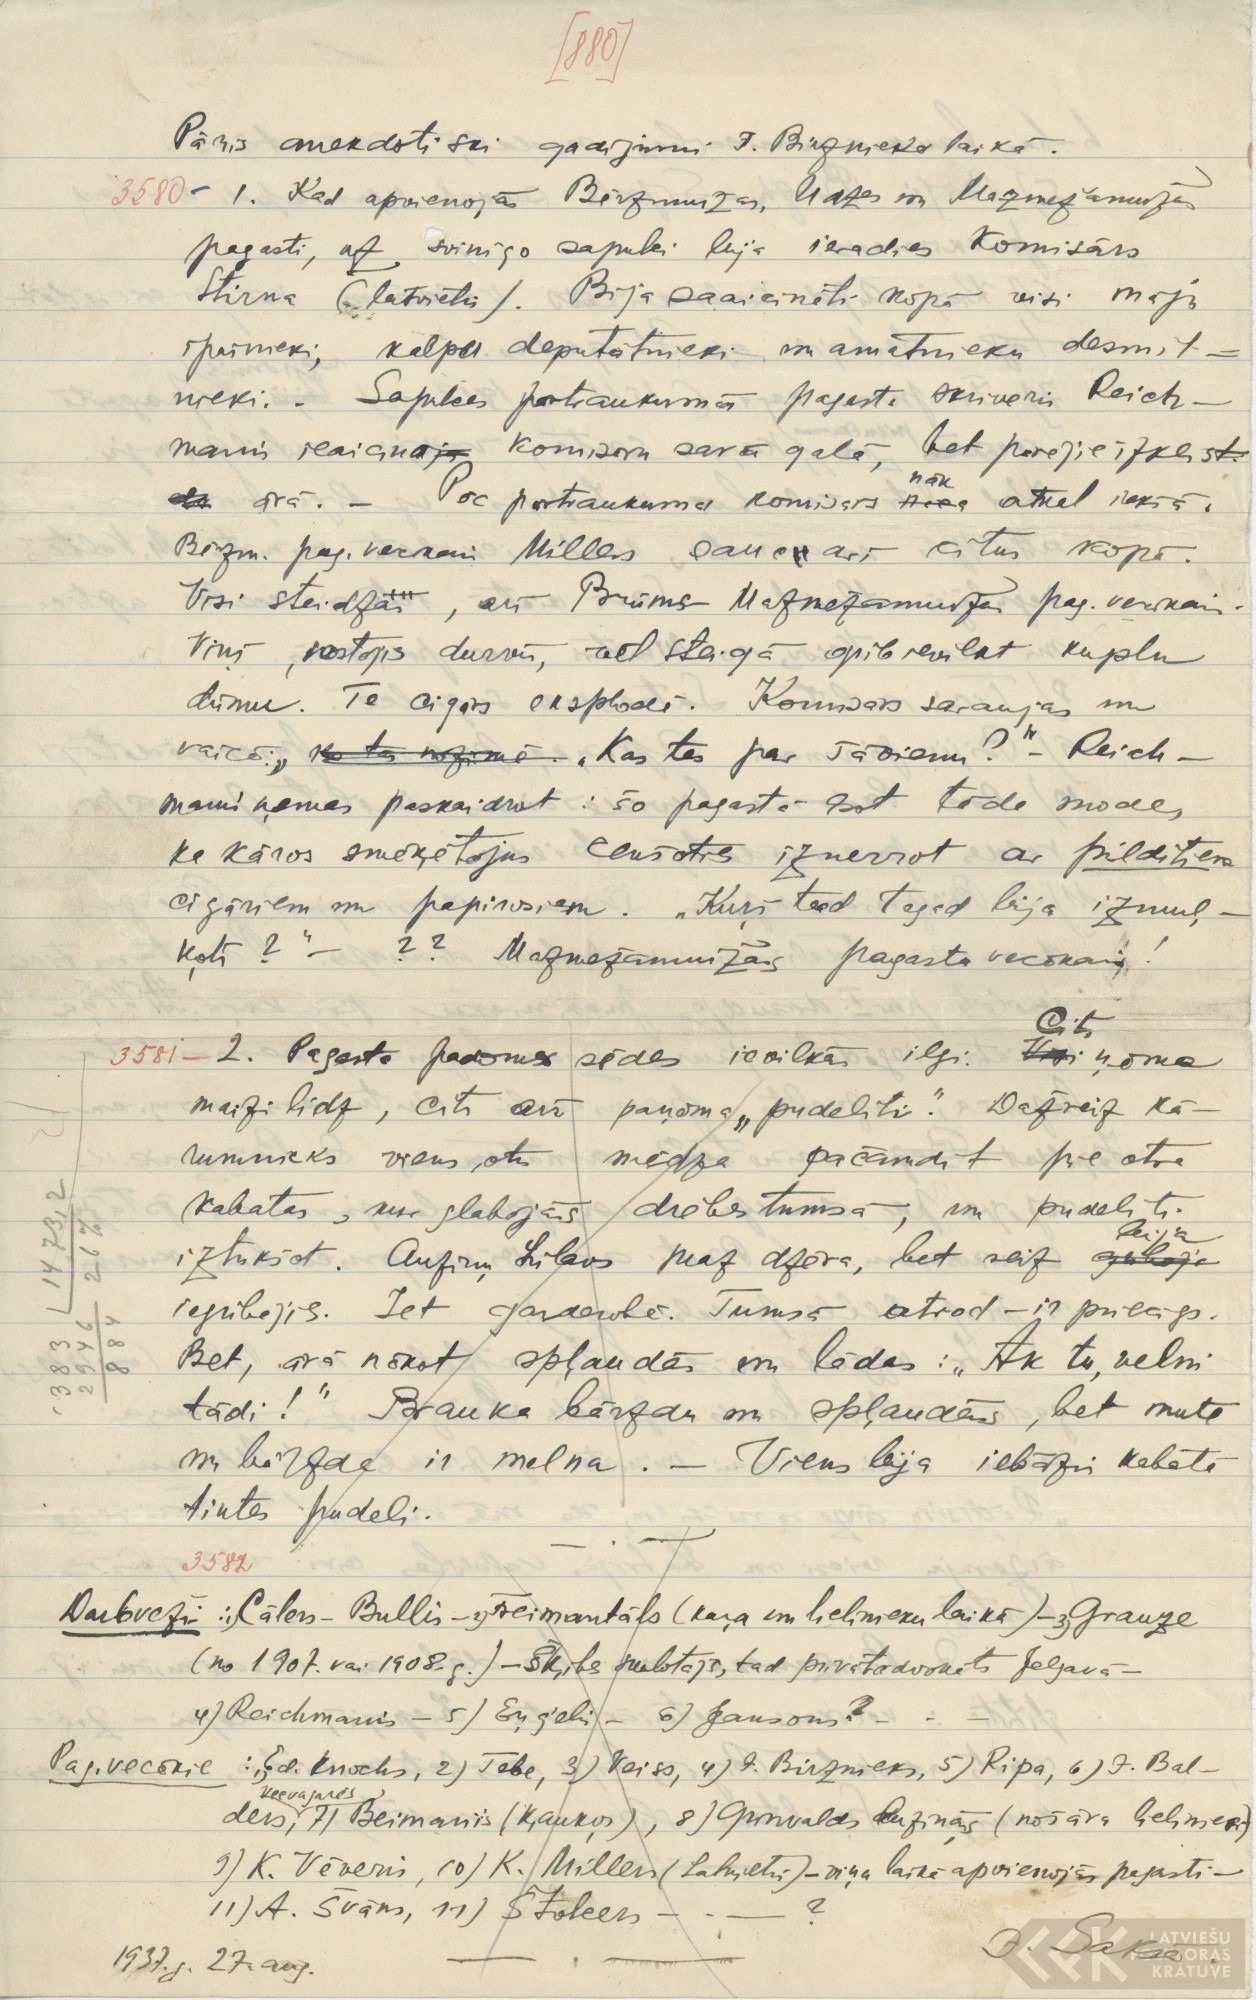 [880]
Pāris anekdotiski gadījumi J. Birznieka laikā.
3580 – 1. Kad apvienojās Bērzmuižas, Udzes un Mazmežamuižas
pagasti, uz svinīgo sapulci bija ieradies Komisārs
Stirna (latvietis). Bija saaicināti kopā visi māju
īpašnieki, kalpu deputātnieki un amatnieku desmit=
nieki. – Sapulces pārtraukumā pagasta skrīveris Reich–
manis ieaicina komisaru savā galā, bet pārējie izklīst
ārā. – Pēc pārtraukuma komisars nāk atkal iekšā.
Bērzm. pag. vecākais Millers sauc arī citus kopā.
Visi steidzās, arī Brūms Mazmežamuižas pag. vecākais.
Viņš, nostājis durvīs, vēl steigā grib ievilkt kuplu
dūmu. Te cigārs eksplodē. Komisars saraujas un
vaicā: „ ko tas nozīmē. „Kas tas par šāvienu?" – Reich–
manis ņemas paskaidrot: šo pagastā esot tāda mode,
ka kāros smēķētājus cenšoties iznerrot ar pildītiem
cigāriem un papirosiem. „Kurš tad tagad bija izmuļ–
ķots?" – ?? Mazmežamuižas pagasta vecākais!
3581 – 2. Pagasta padomes sēdes ievilkās ilgi. Citi ņēma
maizi līdz, citi arī paņēma „pudelīti". Dažreiz kā–
rumnieks viens otrs mēdza pačamdīt pie otra
kabatas, kur glabājās drēbes tumsā, un pudelīti
iztukšot. Auziņu Lūkass maz dzēra, bet reiz bija
iegribējis. Iet garderobē. Tumsā atrod – ir priecīgs.
Bet, ārā nākot spļaudās un lādas: „Ak tu, velni
tādi!" Brauka bārzdu un spļaudās, bet mute
un bārzda ir melna. – Viens bija iebāzis kabatā
tintes pudeli.
1473,2
26%
383
2946
884
3582
Darbveži: 1) Cālers – Bullis – 2) Freimantāls (kara un lielinieku laikā) – 3) Grauze
(no 1907. vai 1908. g.) – Šķibe skolotājs, tad privātadvokāts Jelgavā –
4) Reichmanis – 5) Eņģelis – 6) Jansons? – - –
Pag. vecākie: 1) Ed. Knochs, 2) Tebe, 3) Veiss, 4) J. Birznieks, 5) Ripa, 6) J. Bal–
ders, 7) Beimanis (Kļaukos), 8) Grinvalds Auziņās (nošāva lielinieki)
9) K. Vēveris, 10) K. Millers (Lakstu) – viņa laikā apvienojās pagasti –
11) A. Švāns, 11) Štolcers – - — ?
1937. g. 27. aug.
J. Sakss.
LATVIEŠU
FOLKLORAS
KRĀTUVE